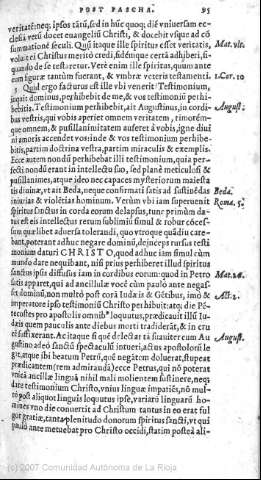 POST PASCHA. 95
veritatẽ: neq; ipsos tãtũ, sed in hũc quoq; diẽ vniuersam ec-
clesiã verũ docet euangeliũ Christi, & docebit vsque ad cõ
summationẽ seculi. Quũ itaque ille spiritus esset veritatis, Mat. vlt.
voluit ei Christus meritò credi, fidemque certã adhiberi, si-
quando de se testaretur. Verè enim ille spiritus, quũ ante
eum figuræ tantùm fuerant, & vmbræ veteris testamenti. 1.Cor.10
3 Quid ergo facturus est ille vbi venerit? Testimonium,
inquit dominus, perhibebit de me, & vos testimoniũ perhi-
bebitis. Testimonium perhibebit, ait Augustinus, in cordi- August.
bus vestris, qui vobis aperiet omnem veritatem, timorem-
que omnem, & pusillanimitatem auferet à vobis, igne diui
ni amoris accendet vos: inde & vos testimonium perhibe-
bitis, partim doctrina vestra, partim miraculis & exemplis.
Ecce autem nondũ perhibebãt illi testimonium, quia per-
fecti nondũ erant in intellectu suo, sed planè meticulosi &
pusillanimes, atque ideo nec capaces mysteriorum maiesta
tis diuinæ, vt ait Beda, neque confirmati satis ad sustinẽdas Beda.
iniurias & violẽtias hominum. Verùm vbi iam superuenit Roma.5.
spiritus sanctus in corda eorum delapsus, tunc primùm da-
tus est eis intellectus rerum sublimiũ simul & robur cõces-
sum quælibet aduersa tolerandi, quo vtroque quãdiu care-
bant, poterant adhuc negare dominũ, deinceps rursus testi
monium daturi CHRISTO, quod adhuc iam simul cùm
mundo dare nequibant, nisi priùs perhiberet illud spiritus
sanctus ipsis diffusus iam in cordibus eorum: quod in Petro Mat.26.
satis apparet, qui ad ancillulæ vocẽ cùm paulò ante negas-
set dominũ, non multò pòst corã Iudæis & Gẽtibus, imò & Act.2.
imperatore ipso testimoniũ Christo perhibuit: atq; die Pẽ-
tecostes pro apostolis omnibꝰ loquutus, prædicauit illũ Iu-
dæis quem pauculis ante diebus morti tradiderãt, & in cru
cẽ sustulerant. Ac itaque fi quẽ delectat tã suauiter cum Au August.
gustino adeò sanctũ spectaculũ intueri, actus apostolorũ le
gat, atque ibi beatum Petrũ, quẽ negãtem doluerat, stupeat
prædicantem (rem admirandã) ecce Petrus, qui nõ poterat
vnicæ ancillæ linguã nihil mali molientem sustinere, neq;
dare testimonium Christo, vnius linguæ impatiẽs, nõ mul-
tò pòst aliquot linguis loquutus ipse, variarũ linguarũ ho-
mines vno die conuertit ad Christum: tantus in eo erat ful
gor gratiæ, tanta plenitudo donorum spiritus sancti, vt qui
paulò ante metuebat pro Christo occidi, statim postea ali-
(c) 2007 Comunidad Autónoma de La Rioja